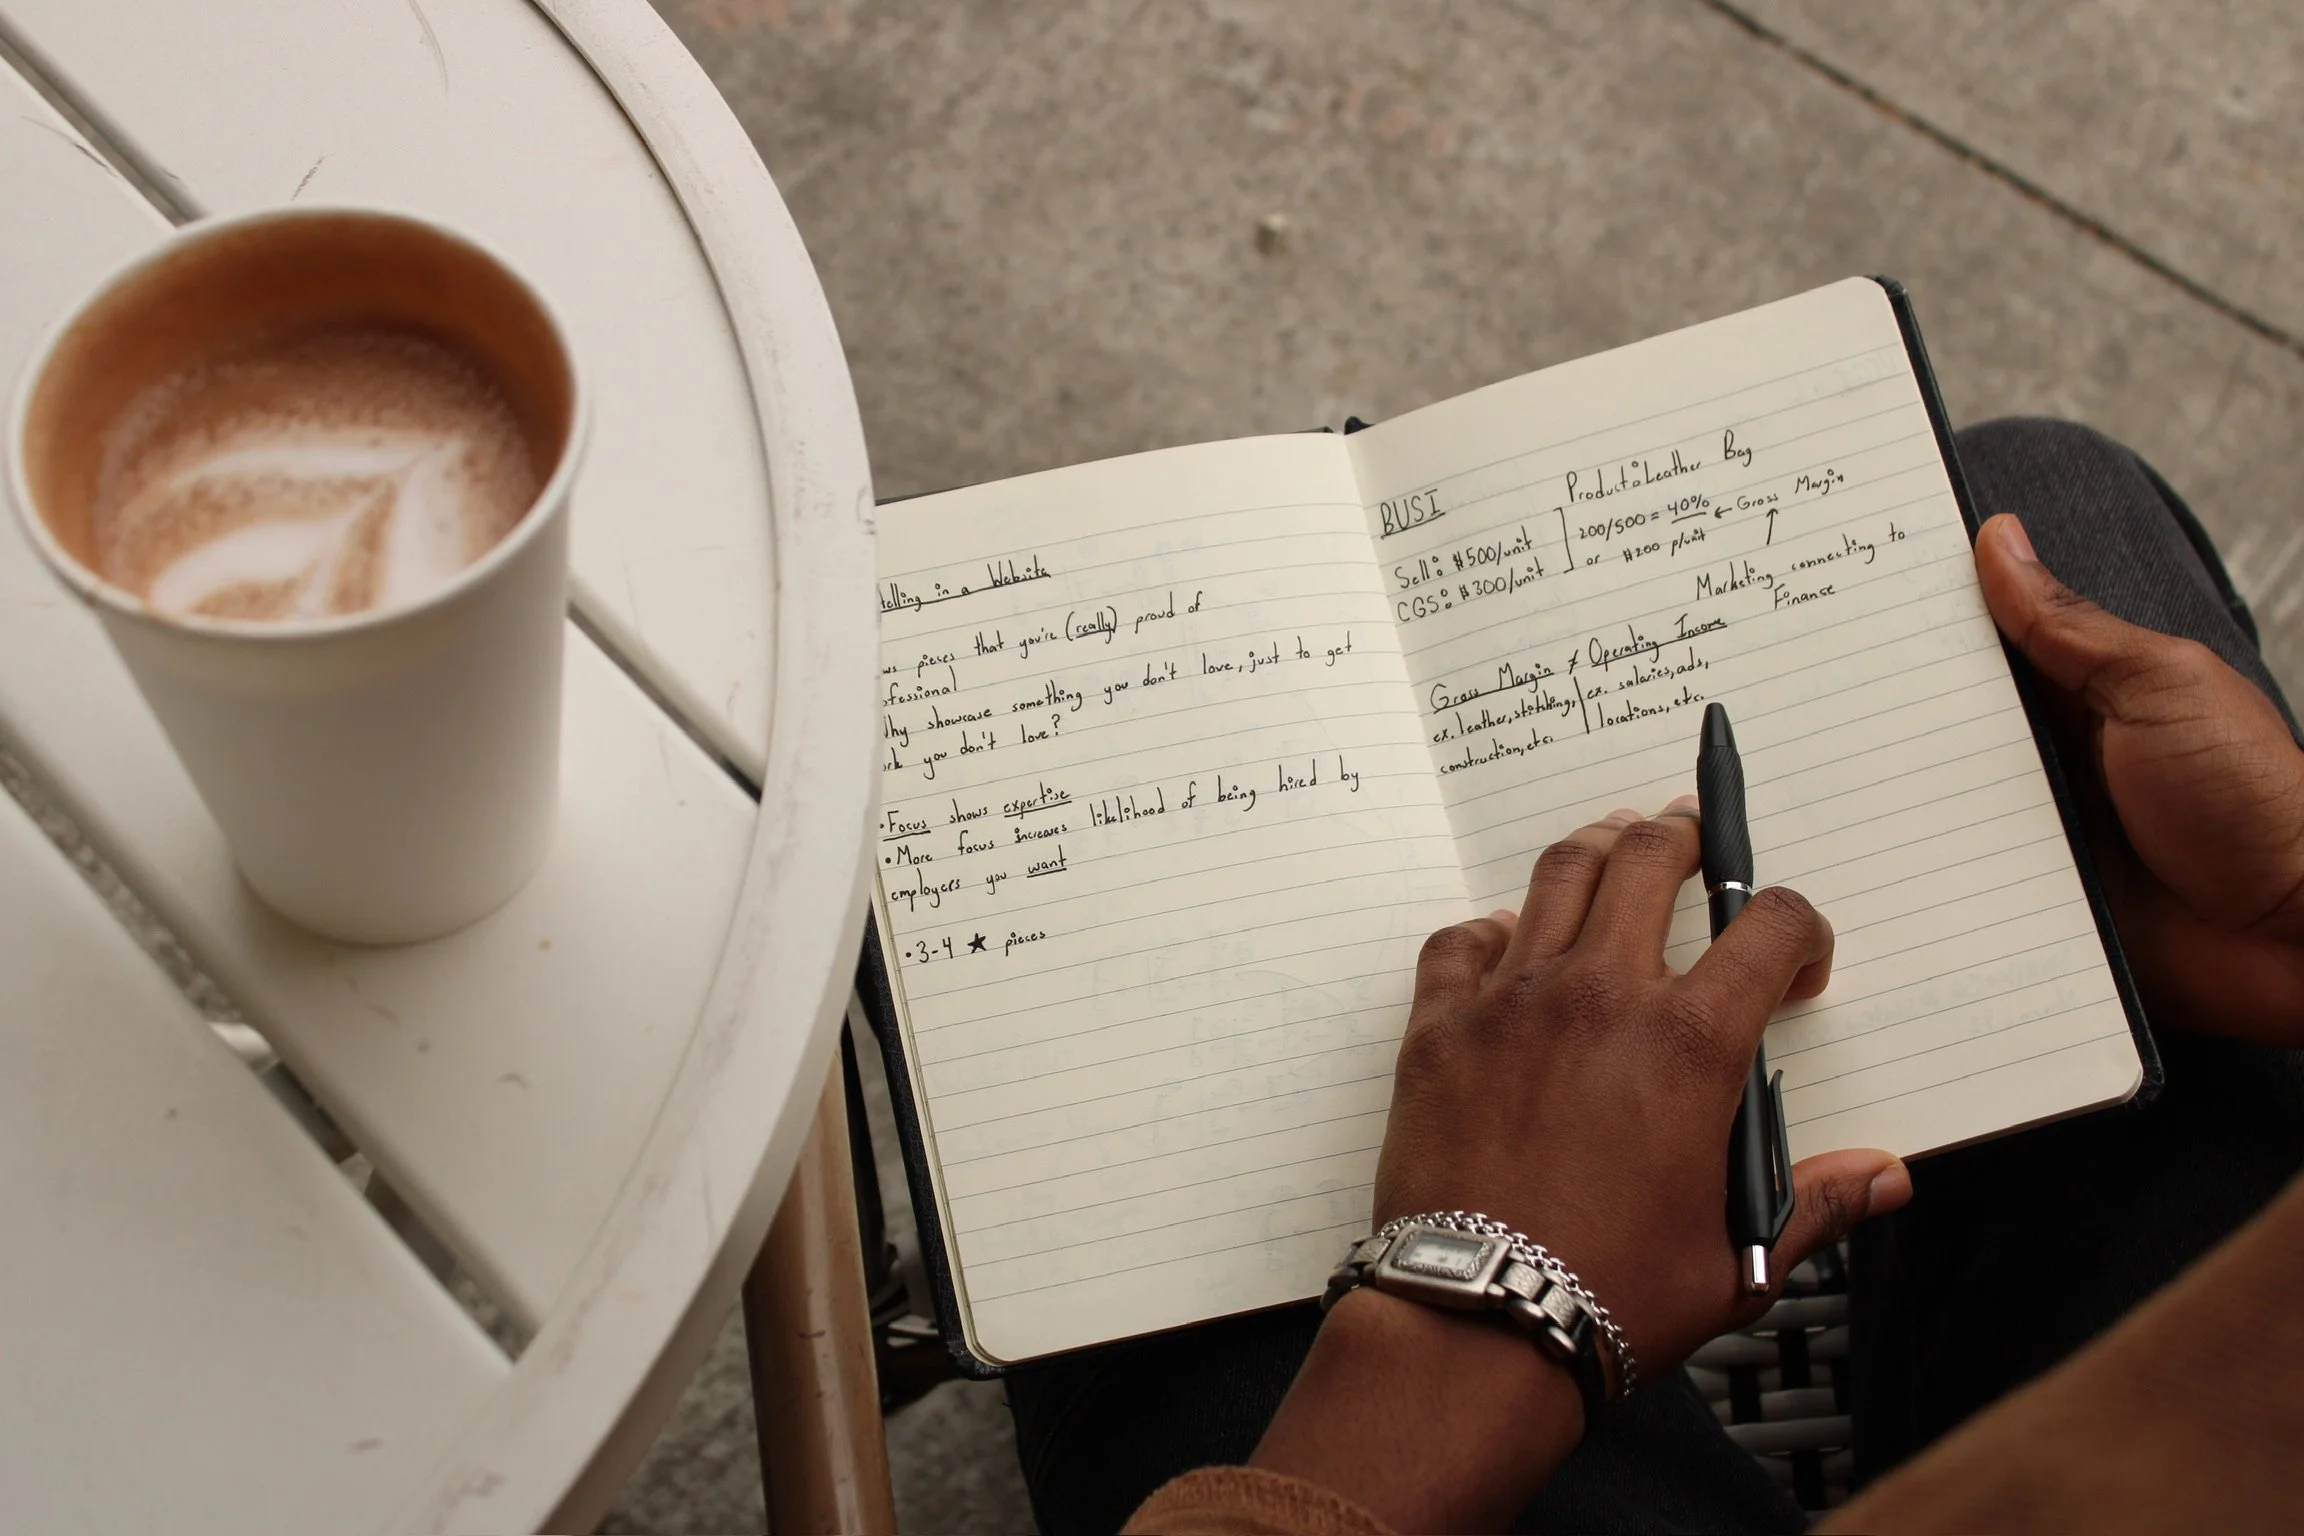 telling in a Website
pieces that you're (really) proud of
fessional
Why showcase something you don't love, just to get
you don't love?
•Focus shows expertise
•More focus increases likelihood of being hired by
employers you want
•3-4 ★ pieces
BUSI
Product: Leather Bag
Sell: $500/unit
CGS: $300/unit
200/500 = 40% ← Gross Margin
or $200 p/unit
Marketing connecting to
Finance
Gross Margin ≠ Operating Income
ex. leather, stitching,
construction, etc.
ex. salaries, ads,
locations, etc.